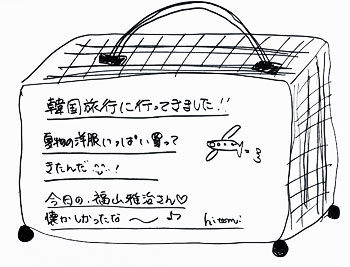 韓国旅行に行ってきました!!
夏物の洋服いっぱい買って
きたんだ !
今日の、福山雅治さん♡
懐かしかったな 〜 ♪
hitomi